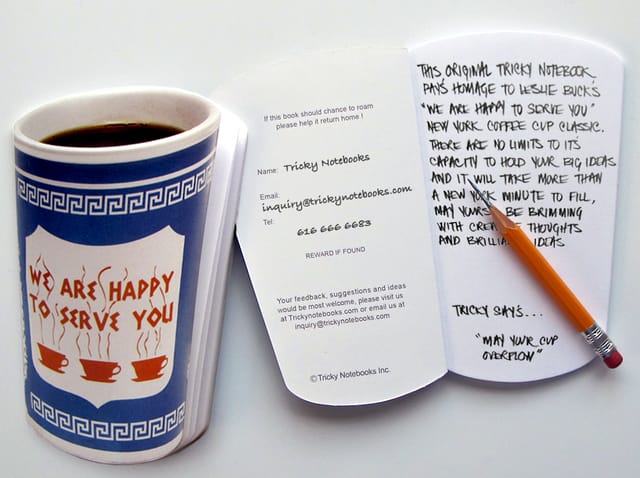 WE ARE HAPPY
TO SERVE YOU
If this book should chance to roam
please help it return home !
Name: Tricky Notebooks
Email:
inquiry@trickynotebooks.com
Tel:
616 666 6683
REWARD IF FOUND
Your feedback, suggestions and ideas
would be most welcome, please visit us
at Trickynotebooks.com or email us at
inquiry@trickynotebooks.com
©Tricky Notebooks Inc.
THIS ORIGINAL TRICKY NOTEBOOK
PAYS HOMAGE TO LESLIE BUCK'S
"WE ARE HAPPY TO SERVE YOU"
NEW YORK COFFEE CUP CLASSIC.
THERE ARE NO LIMITS TO IT'S
CAPACITY TO HOLD YOUR BIG IDEAS
AND IT WILL TAKE MORE THAN
A NEW YORK MINUTE TO FILL,
MAY YOURS BE BRIMMING
WITH CREATIVE THOUGHTS
AND BRILLIANT IDEAS
TRICKY SAY'S...
"MAY YOUR CUP
OVERFLOW"